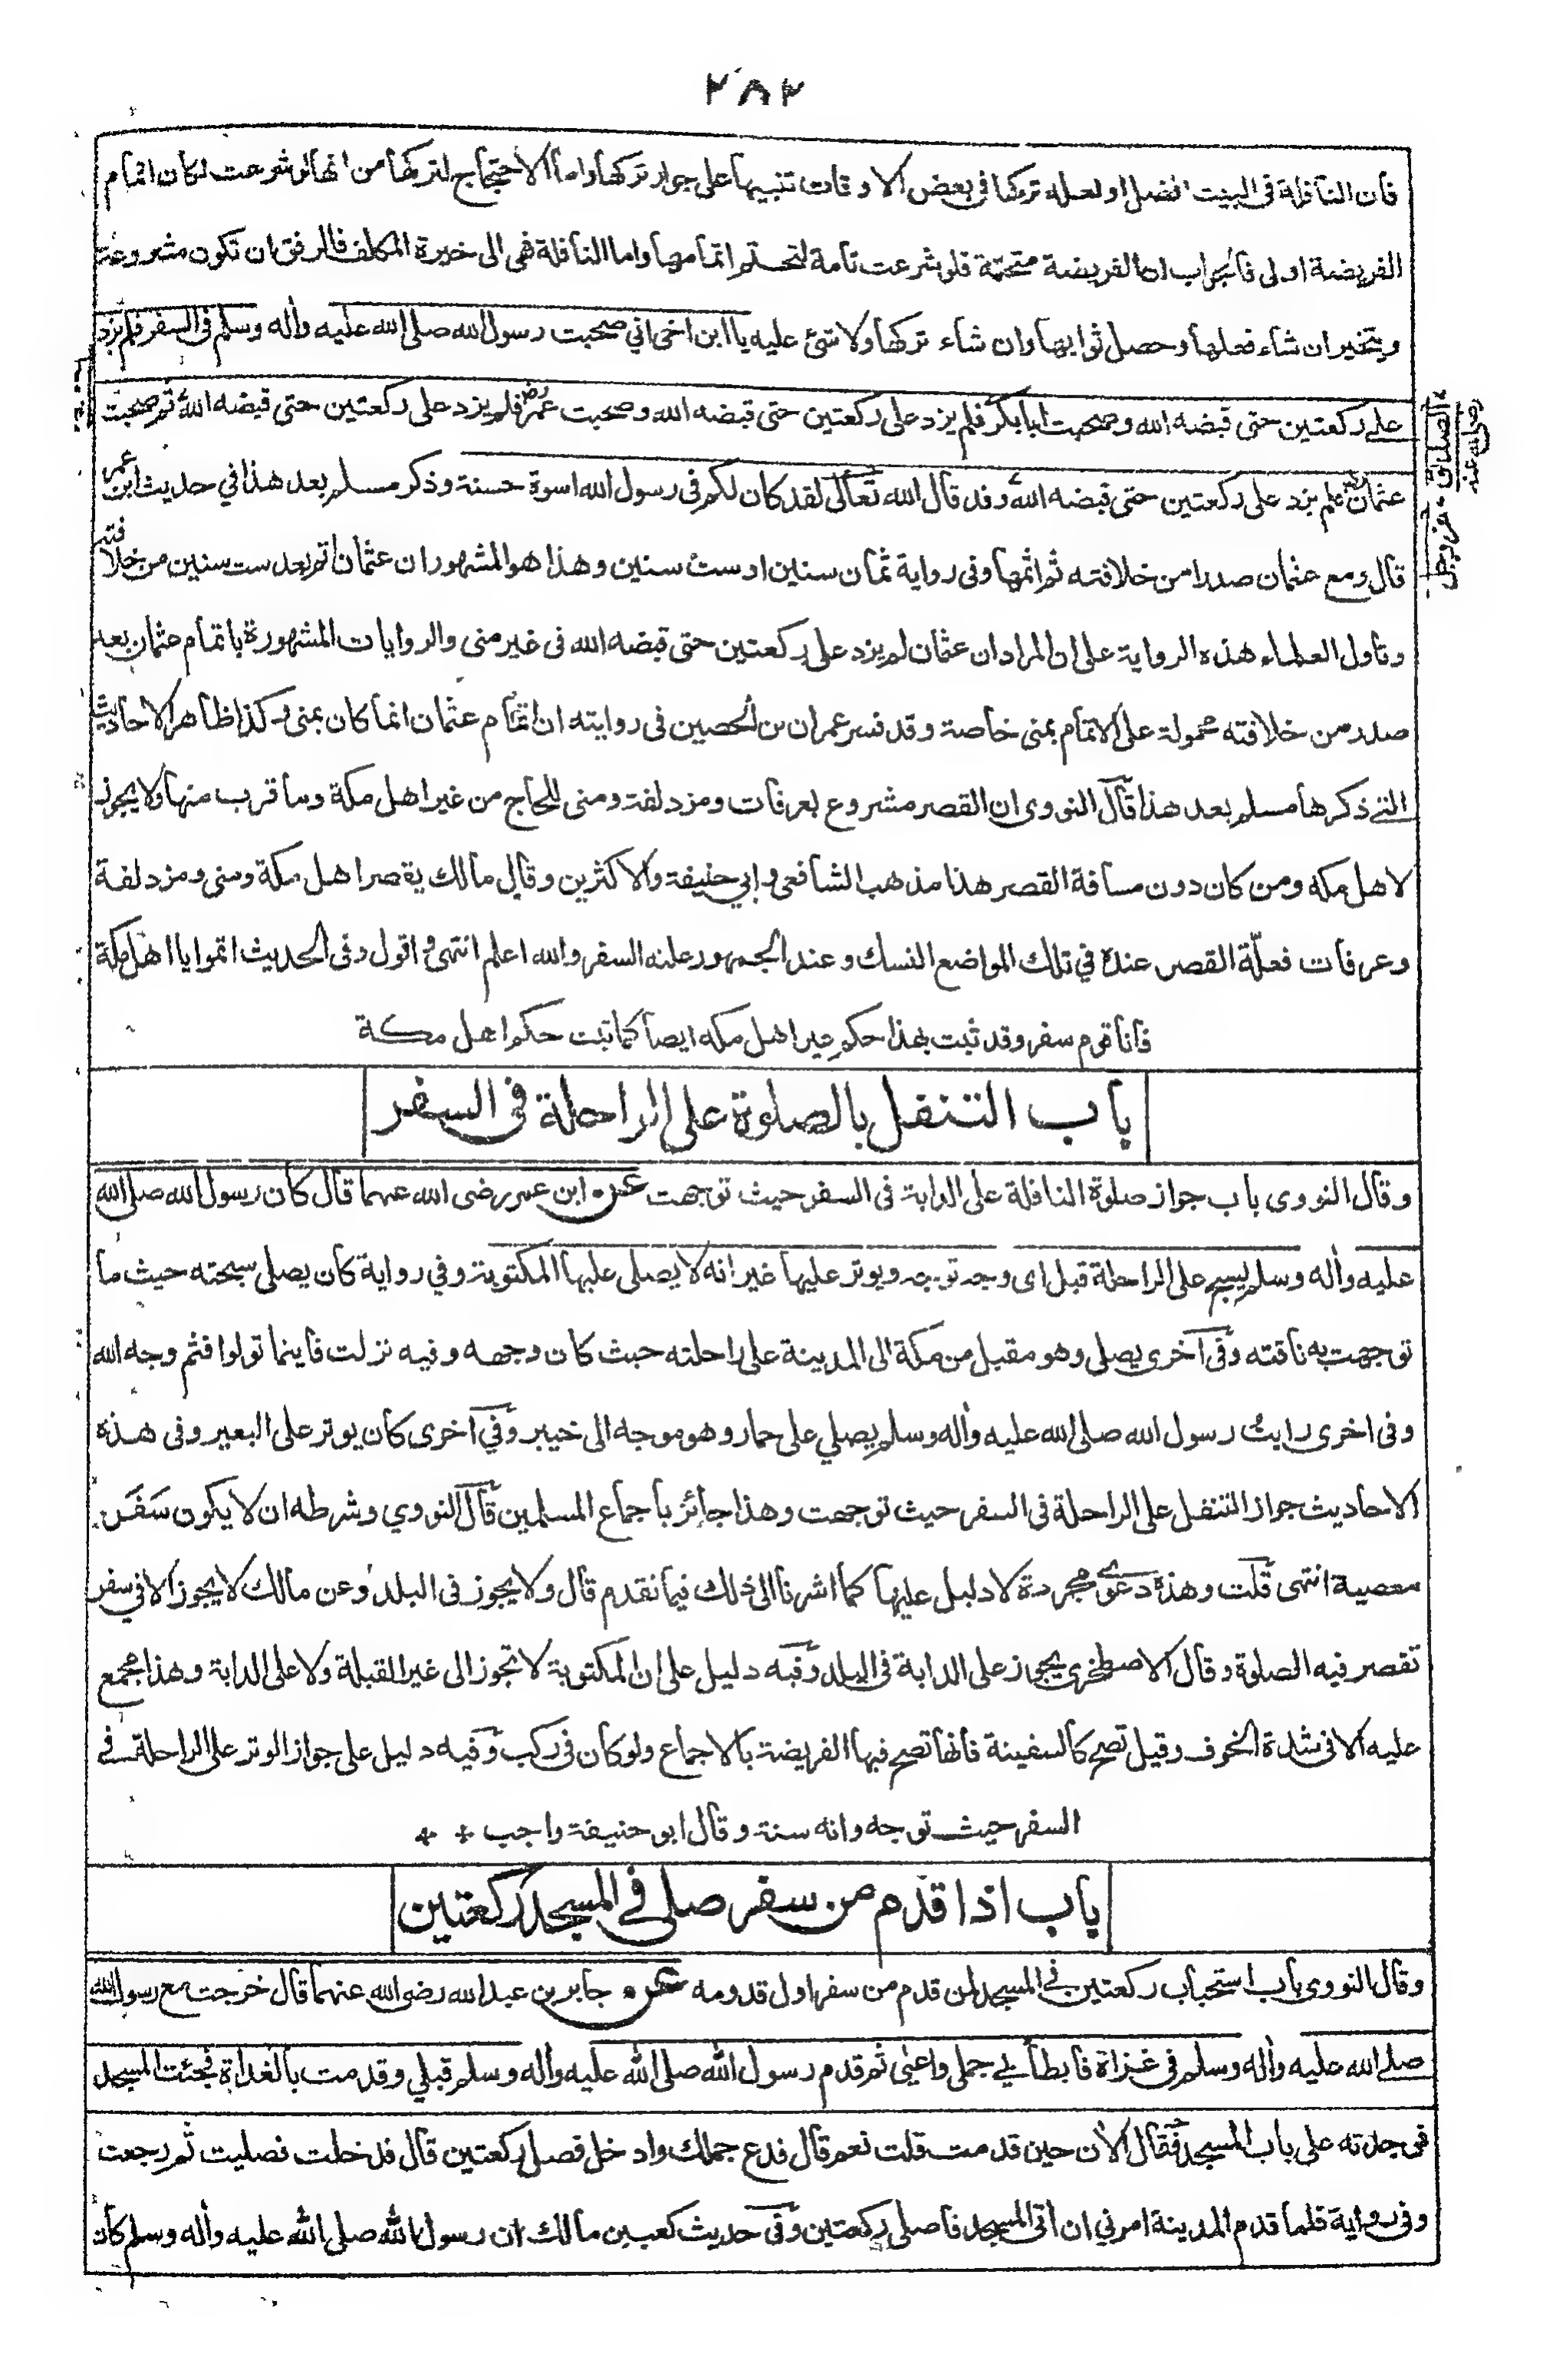 ٢٨٣
فان النافلة فى البيت افضل او لعله تركها فى بعض الاوقات تنبيها على جواز تركها واما الاحتجاج لتركها من انها لو شرعت لكان اتمام
الفريضة اولى فالجواب ان الفريضة متحتمة فلو شرعت تامة لتحتم اتمامها واما النافلة فهى الى خيرة المكلف فالرفق ان تكون مشروعة
ويتخير ان شاء فعلها وحصل ثوابها وان شاء تركها ولا شئ عليه يا ابن اخى اني صحبت رسول الله صلى الله عليه واٰله وسلم فى السفر فلم يزد
على ركعتين حتى قبضه الله وصحبت ابا بكر فلم يزد على ركعتين حتى قبضه الله وصحبت عمر رض فلم يزد على ركعتين حتى قبضه الله ثم صحبت
عثمان فلم يزد على ركعتين حتى قبضه الله وقد قال الله تعالى لقد كان لكم فى رسول الله اسوة حسنة وذكر مسلم بعد هذا في حديث ابن عمر
قال ومع عثمان صدرا من خلافته ثم اتمها وفى رواية ثمان سنين او ست سنين وهذا هو المشهور ان عثمان اتم بعد ست سنين من خلافته
وتاول العلماء هذه الرواية على ان المراد ان عثمان لم يزد على ركعتين حتى قبضه الله فى غير منى والروايات المشهورة باتمام عثمان بعد
صدر من خلافته محمولة على الاتمام بمنى خاصة وقد فسر عمران بن الحصين فى روايته ان اتمام عثمان انما كان بمنى وكذا ظاهر الاحاديث
التى ذكرها مسلم بعد هذا قال النووى ان القصر مشروع بعرفات ومزدلفة ومنى للحاج من غير اهل مكة وما قرب منها ولا يجوز
لاهل مكه ومن كان دون مسافة القصر هذا مذهب الشافعى وابي حنيفة والاكثرين وقال مالك يقصر اهل مكة ومنى ومزدلفة
وعرفات فعلّة القصر عنده في تلك المواضع النسك وعند الجمهور علته السفر والله اعلم انتهى واقول وفى الحديث اتموا يا اهل مكة
فانا قوم سفر وقد ثبت بهذا حكم غير اهل مكه ايضا كما ثبت حكم اهل مكة
باب التنفل بالصلوة على الراحلة فى السفر
وقال النووى باب جواز صلوة النافلة على الدابة فى السفر حيث توجهت عن ابن عمر رضى الله عنهما قال كان رسول الله صلى الله
عليه واٰله وسلم يسبح على الراحلة قبل اى وجه توجه ويوتر عليها غير انه لا يصلى عليها المكتوبة وفي رواية كان يصلى سبحته حيث ما
توجهت به ناقته وفى اخرى يصلى وهو مقبل من مكة الى المدينة على راحلته حيث كان وجهه وفيه نزلت فاينما تولوا فثم وجه الله
وفى اخرى رايت رسول الله صلى الله عليه واٰله وسلم يصلي على حمار وهو موجه الى خيبر وفي اخرى كان يوتر على البعير وفى هذه
الاحاديث جواز التنفل على الراحلة فى السفر حيث توجهت وهذا جائز باجماع المسلمين قال النووي وشرطه ان لا يكون سفر
معصية انتهى قلت وهذه دعوى مجردة لا دليل عليها كما اشرنا الى ذلك فيما تقدم قال ولا يجوز فى البلد وعن مالك لا يجوز الا في سفر
تقصر فيه الصلوة وقال الاصطخرى يجوز على الدابة فى البلد وفيه دليل على ان المكتوبة لا تجوز الى غير القبلة ولا على الدابة وهذا مجمع
عليه الا فى شدة الخوف وقيل تصح كالسفينة فانها تصح فيها الفريضة بالاجماع ولو كان فى ركب وفيه دليل على جواز الوتر على الراحلة فى
السفر حيث توجه وانه سنة وقال ابو حنيفة واجب
باب اذا قدم من سفر صلى في المسجد ركعتين
وقال النووى باب استحباب ركعتين فى المسجد لمن قدم من سفر اول قدومه عن جابر بن عبد الله رضى الله عنهما قال خرجت مع رسول الله
صلى الله عليه واٰله وسلم فى غزاة فابطأ بي جملى واعيى ثم قدم رسول الله صلى الله عليه واٰله وسلم قبلي وقدمت بالغداة فجئت المسجد
فوجدته على باب المسجد فقال الاٰن حين قدمت قلت نعم قال فدع جملك وادخل فصل ركعتين قال فدخلت فصليت ثم رجعت
وفى رواية فلما قدم المدينة امرني ان اٰتى المسجد فاصلى ركعتين وفى حديث كعب بن مالك ان رسول الله صلى الله عليه واٰله وسلم كان